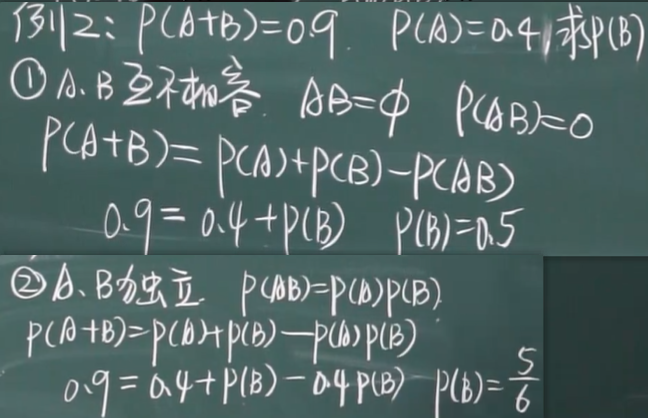 例2: P(A+B)=0.9. P(A)=0.4, 求P(B)
① A、B互不相容. AB=φ P(AB)=0
P(A+B)=P(A)+P(B)-P(AB)
0.9=0.4+P(B) P(B)=0.5
② A、B为独立. P(AB)=P(A)P(B).
P(A+B)=P(A)+P(B)-P(A)P(B)
0.9=0.4+P(B)-0.4P(B) P(B)=5/6